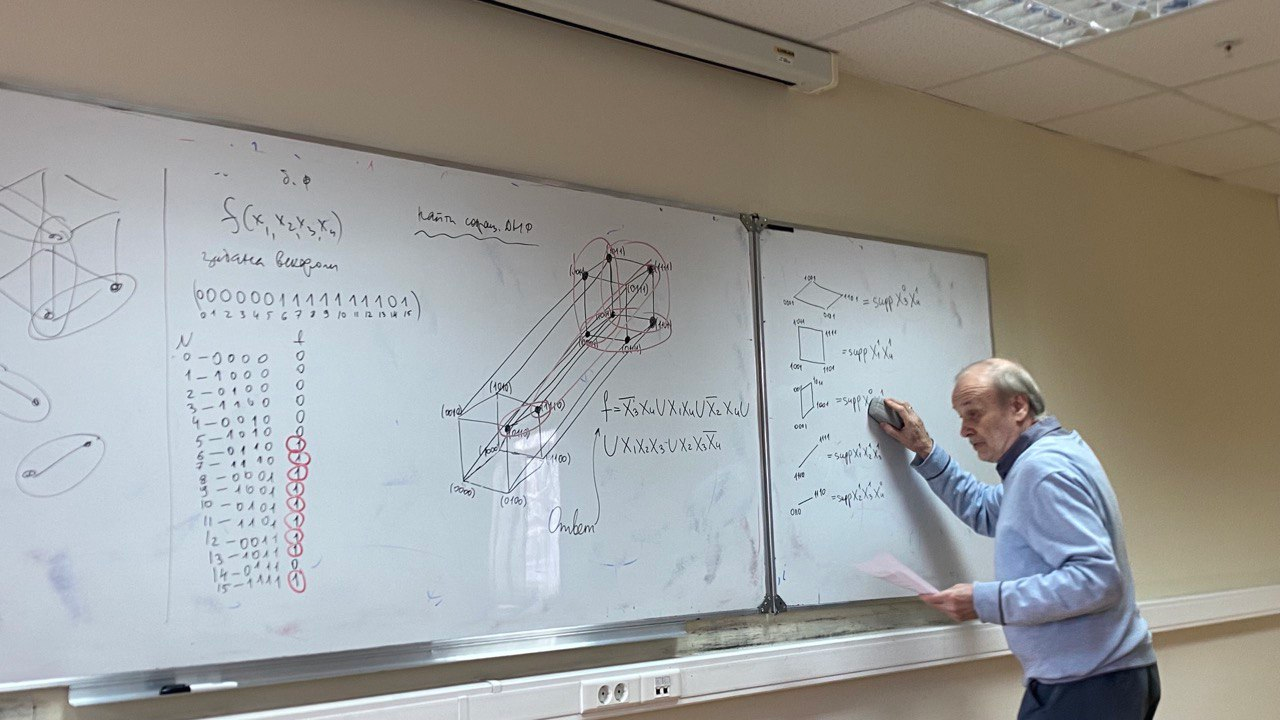 б.ф
f(x₁,x₂,x₃,x₄)
задана вектором
(0000001111111101)
0 1 2 3 4 5 6 7 8 9 10 11 12 13 14 15
N f
0 – 0000 0
1 – 1000 0
2 – 0100 0
3 – 1100 0
4 – 0010 0
5 – 1010 0
6 – 0110 1
7 – 1110 1
8 – 0001 1
9 – 1001 1
10 – 0101 1
11 – 1101 1
12 – 0011 1
13 – 1011 1
14 – 0111 0
15 – 1111 1
Найти сокращ. ДНФ
(1111)
(0111)
(1010)
(0010)
(1110)
(0110)
(1100)
(0000)
(0100)
f = X̅₃X₄ U X₁X₄ U X̅₂X₄ U
U X₁X₂X₃ U X₂X₃X̅₄
Ответ
1001
0001
1101
= supp X₃⁰X₄¹
1111
1001
1101
= supp X₁¹X₄¹
1001
0001
= supp X
1111
1110
= supp X₁¹X₂¹X₃¹
1110
= supp X₂¹X₃¹X₄